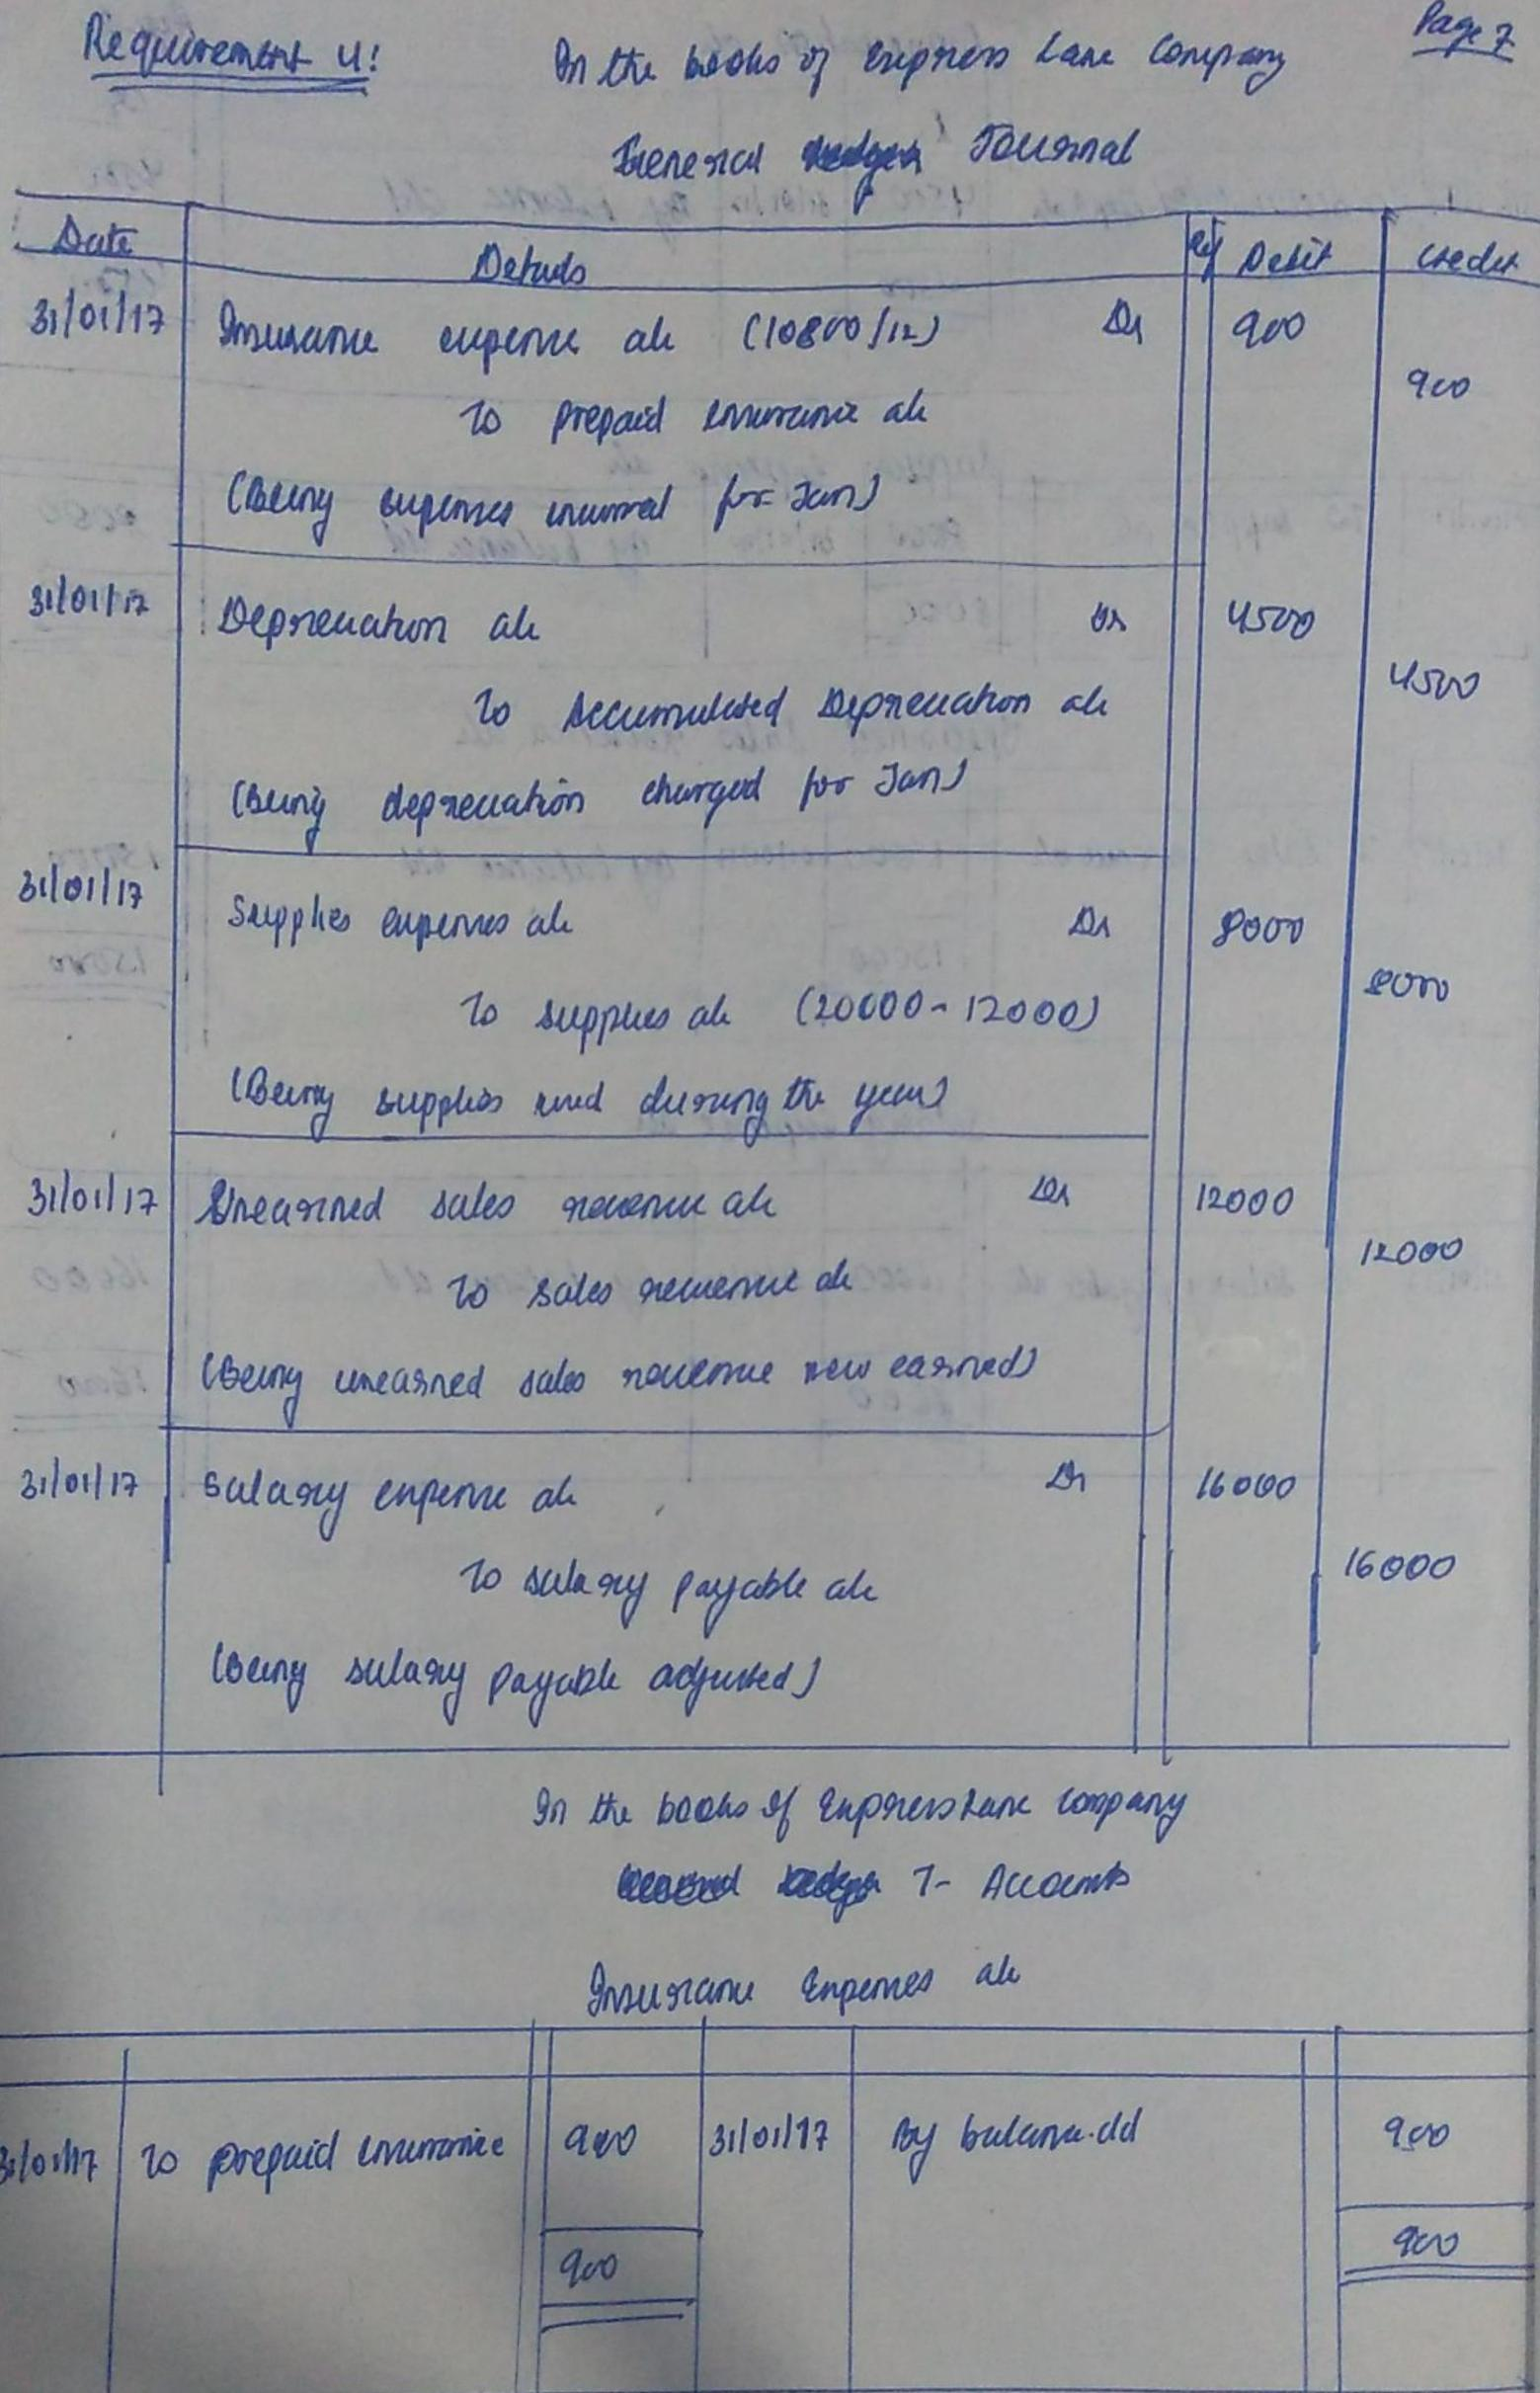 Page 7
Requirement 4! In the books of Express Lane Company
General Journal
Date Details Rf Debit Credit
31/01/17 Insurance expense a/c (10800/12) Dr 900
To prepaid insurance a/c 900
(Being expenses incurred for Jan)
31/01/17 Depreciation a/c Dr 4500
To Accumulated Depreciation a/c 4500
(Being depreciation charged for Jan)
31/01/17 Supplies expenses a/c Dr 8000
To supplies a/c (20000-12000) 8000
(Being supplies used during the year)
31/01/17 Unearned sales revenue a/c Dr 12000
To sales revenue a/c 12000
(Being unearned sales revenue now earned)
31/01/17 Salary expense a/c Dr 16000
To salary payable a/c 16000
(Being salary payable adjusted)
In the books of Express Lane Company
T- Accounts
Insurance Expenses a/c
31/01/17 To prepaid insurance 900 31/01/17 By balance.dd 900
900 900